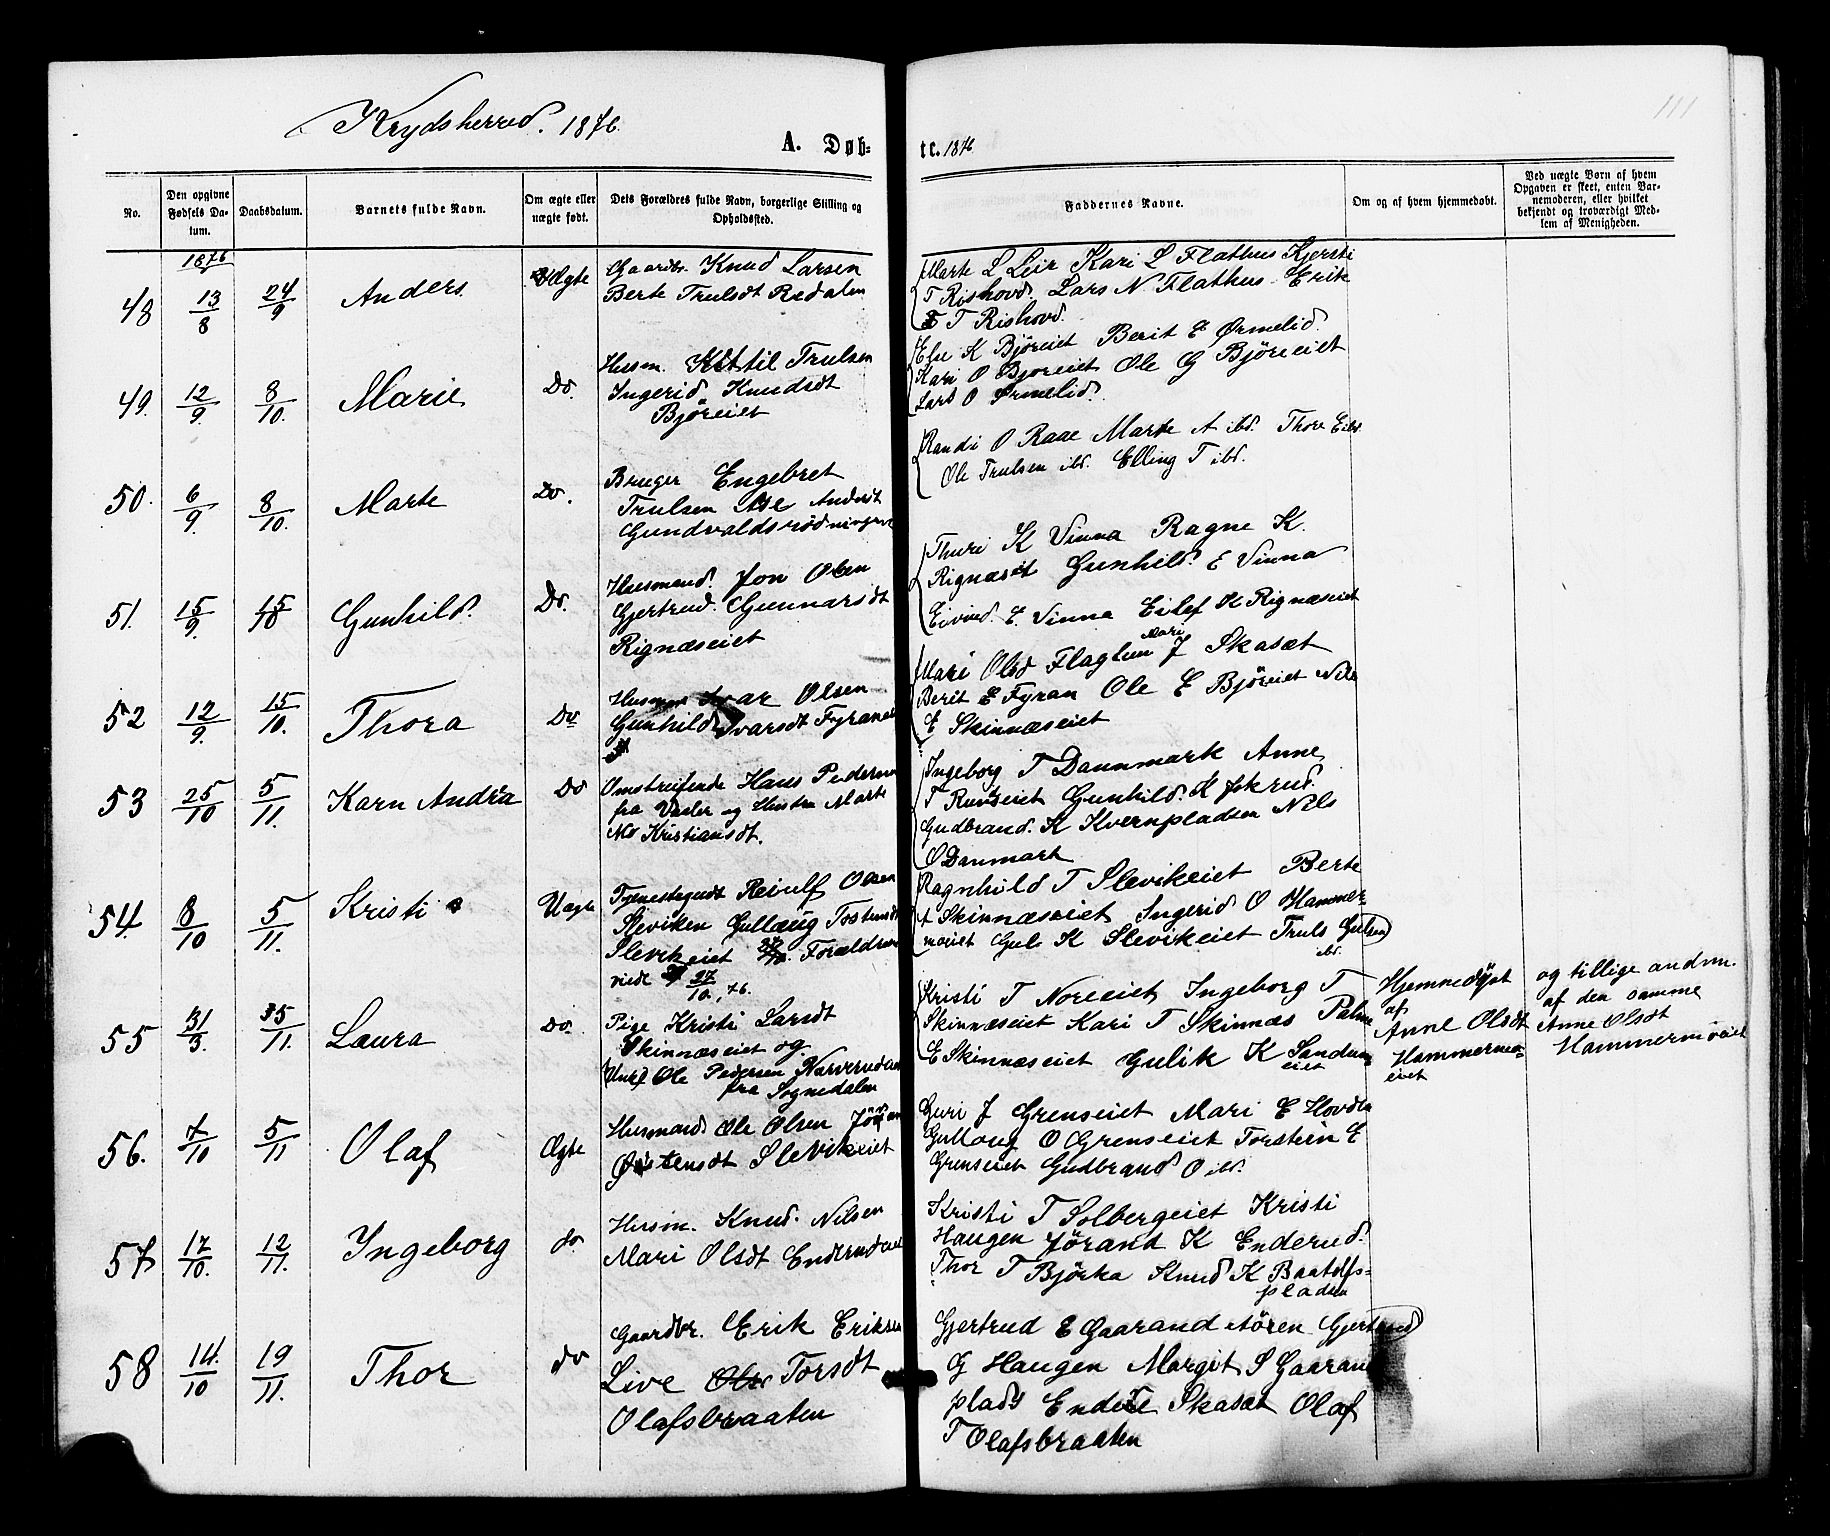 Krydsherred. 1876.
111
A. Døb-
te. 1876
No.
Den opgivne Fødsels Datum.
Daabsdatum.
Barnets fulde Navn.
Om ægte eller uægte født.
Dets Forældres fulde Navn, borgerlige Stilling og Opholdssted.
Faddernes Navne.
Om og af hvem hjemmedøbt.
Ved uægte Børn af hvem Opgaven er skeet, enten Barnemoderen, eller hvilket bekjendt og troværdigt Medlem af Menigheden.
1876
48 13/8 24/9 Anders Ægte
Gaardbr. Knud Larsen
Berte Trulsdt Redalen
Marte L Leir Kari L Flathus Kjersti
T Rishovd. Lars N Flathus Erik
T Rishovd.
49. 12/9. 8/10. Marie Do.
Husm. Kittil Trulsen
Ingerid Knudsdt
Bjøreiet
Else K Bjøreiet Berit E Ørmelid.
Kari O Bjøreiet Ole G Bjøreiet
Lars O Ørmelid.
50. 6/9. 8/10. Marte Do.
Bruger Engebret
Trulsen Andersdt
Randi O Raae Marte A ibd. Thore E ibd.
Ole Trulsen ibd. Elling T ibd.
51. 15/9. 15/10 Gunhild. Do.
Husmand. Jon Olsen
Gjertrud. Gunnarsdt
Rignæseiet
Thuri K Vinna Ragne K.
Rignæseiet Gunhild. E Vinna
Eivind. E. Vinna Eilef K Rignæseiet
52 12/9. 15/10. Thora Do
Husm Ivar Olsen
Gunhild Ivarsdt
Mari Olsd Flaglien Mari J Skasæt
Berit E Fyran Ole E Bjøreiet Nils
E Skinnæseiet
53 25/10 5/11. Karn Andrea Do
Omstreifende Hans Pedersen
fra Vaaler og Hustru Marte
Kristiansdt.
Ingeborg T Dannmark Anne
T Gunhild. K
Gudbrand. K Kvernpladsen Nils
O Danmark
54. 8/10 5/11. Kristi Uægte
Tjenestegudt Reiulf Olsen
Sleviken Gullaug Tostensdt
Slevikeiet Forældrene
viede 27/10. 76.
Ragnhild T Slevikeiet Berte
A Skinnæseiet Ingerid O Hammer-
moeiet Gul K Slevikeiet Truls Gulsen
ibd.
55 31/3. 5/11. Laura Do.
Pige Kristi Larsdt
Skinnæseiet og
Ungk Ole Pedersen
fra Sognedalen
Kristi T Noreeiet Ingeborg T
Skinnæseiet Kari T Skinnæs Palme
E Skinnæseiet Gulik K Sandum-
eiet
Hjemmedøpt
af
Anne Olsdt
Hammermo-
eiet
og tillige andm.
af den samme
Anne Olsdt
Hammermoeiet
56. 7/10 5/11 Olaf Ægte
Husmand Ole Olsen Jøran
Østensdt Slevikeiet
Guri J Grenseiet Mari E Hovde
Gullaug O Grenseiet Torstein E
Grenseiet Gudbrand O ibd.
57 17/10. 12/11. Ingeborg do
Husm. Knud. Nilsen
Mari Olsdt Enderudeiet
Kristi T Solbergeiet Kristi
Haugen Jørand K Enderud.
Thor T Bjørka Knud K Baatolfs-
pladsen
58 14./10 19/11. Thor do
Gaardbr. Erik Eriksen
Live Torsdt
Olafsbraaten
Gjertrud E Gaarand Gjertrud
G Haugen Margit S Gaaran
plads Endre Skasæt Olaf
T Olafsbraaten